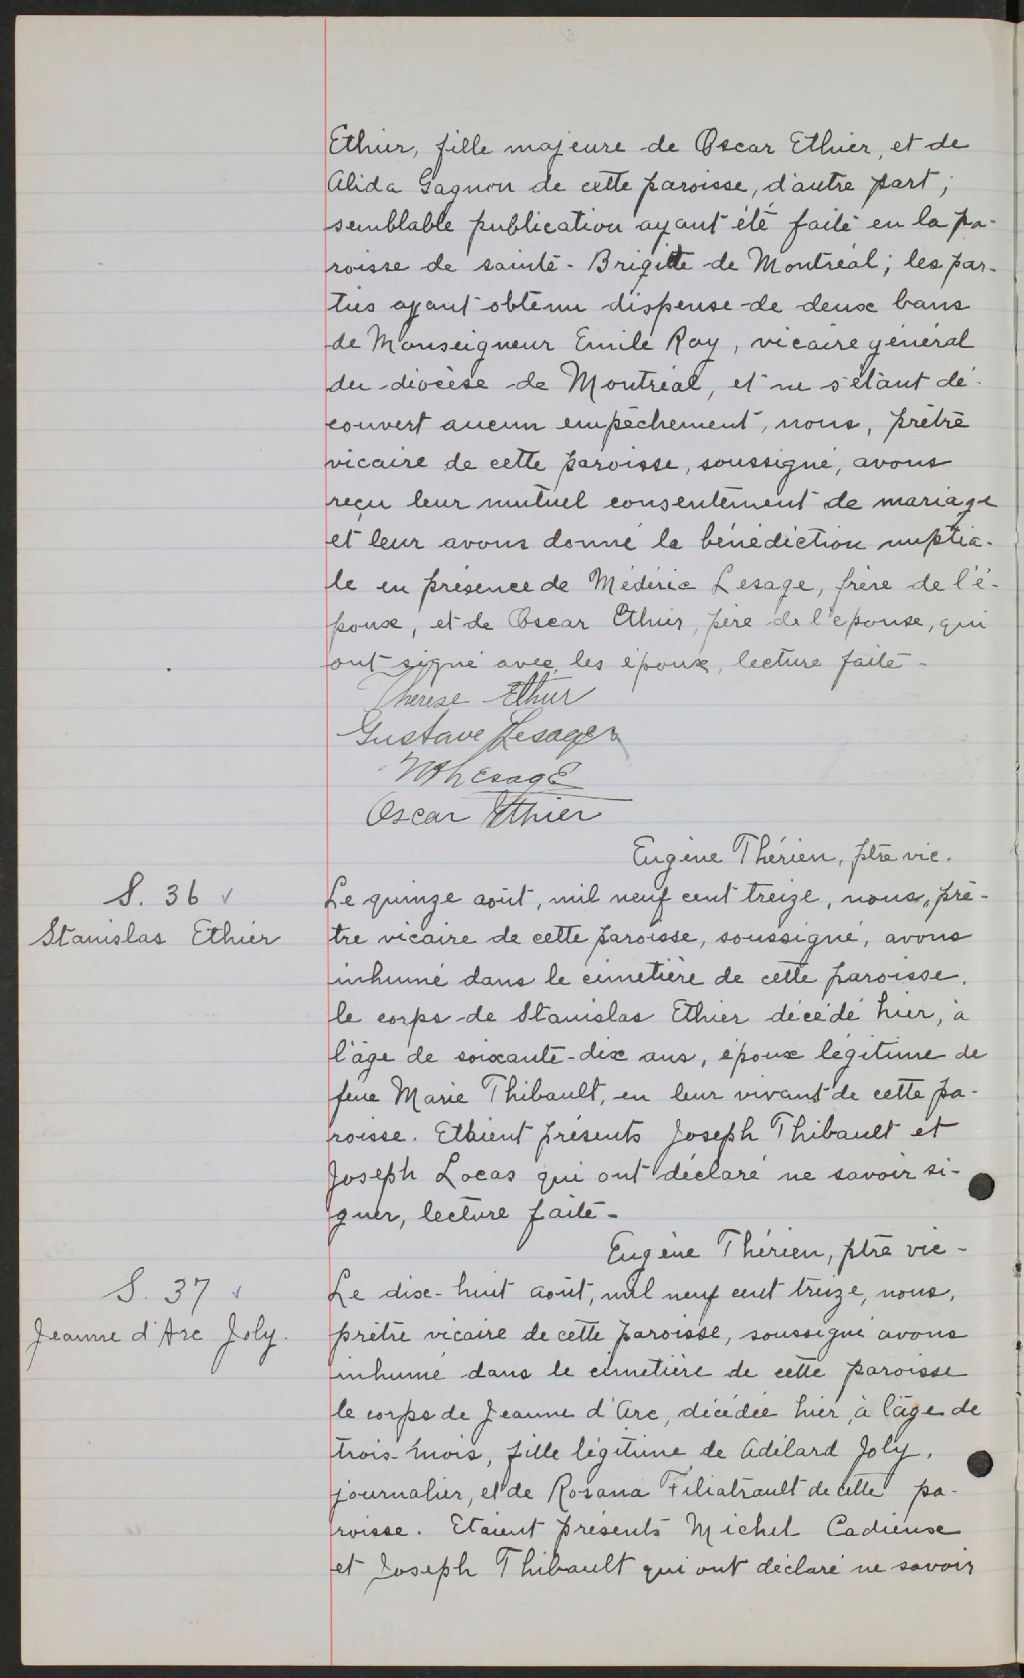 Ethier, fille majeure de Oscar Ethier, et de
Alida Gagnon de cette paroisse, d'autre part;
semblable publication ayant été faite en la pa-
roisse de sainte-Brigitte de Montréal; les par-
ties ayant obtenu dispense de deux bans
de Monseigneur Emile Roy, vicaire général
du diocèse de Montréal, et ne s'étant dé-
couvert aucun empêchement, nous, prêtre
vicaire de cette paroisse, soussigné, avons
reçu leur mutuel consentement de mariage
et leur avons donné la bénédiction nuptia-
le en présence de Médéric Lesage, frère de l'é-
poux, et de Oscar Ethier, père de l'épouse, qui
ont signé avec les époux, lecture faite -
Thérèse Ethier
Gustave Lesage
M Lesage
Oscar Ethier
Eugène Thérien, ptre vic.
S. 36
Stanislas Ethier
Le quinze août, mil neuf cent treize, nous, prê-
tre vicaire de cette paroisse, soussigné, avons
inhumé dans le cimetière de cette paroisse,
le corps de Stanislas Ethier décédé hier, à
l'âge de soixante-dix ans, époux légitime de
feue Marie Thibault, en leur vivant de cette pa-
roisse. Etaient présents Joseph Thibault et
Joseph Locas qui ont déclaré ne savoir si-
gner, lecture faite -
Eugène Thérien, ptre vic -
S. 37
Jeanne d'Arc Joly.
Le dix-huit août, mil neuf cent treize, nous,
prêtre vicaire de cette paroisse, soussigné avons
inhumé dans le cimetière de cette paroisse
le corps de Jeanne d'Arc, décédée hier, à l'âge de
trois mois, fille légitime de Adélard Joly,
journalier, et de Rosana Filiatrault de cette pa-
roisse. Etaient présents Michel Cadieux
et Joseph Thibault qui ont déclaré ne savoir